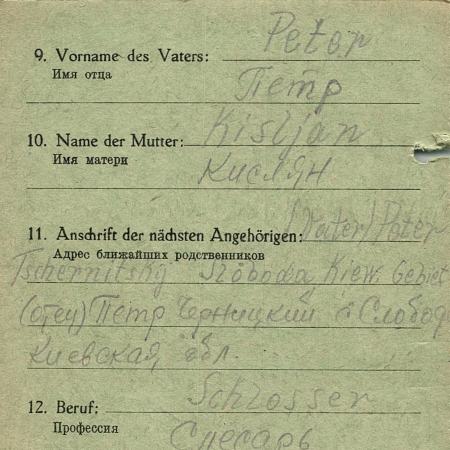 Peter
9. Vorname des Vaters:
Имя отца
Петр
10. Name der Mutter: Kisljan
Имя матери
Кислян
(Vater) Peter
11. Anschrift der nächsten Angehörigen:
Адрес ближайших родственников
Tschernitsky Sloboda, Kiew. Gebiet
(отец) Петр Черницкий Слобод
Киевская, обл.
Schlosser
12. Beruf:
Профессия
Слесарь